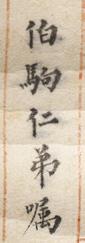 伯駒仁弟嘱